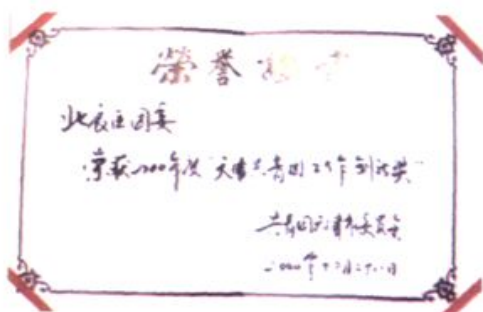 榮誉證书
北辰区团委
荣获2000年度"天津共青团工作创新奖"
共青团天津市委员会
2000年十二月二十